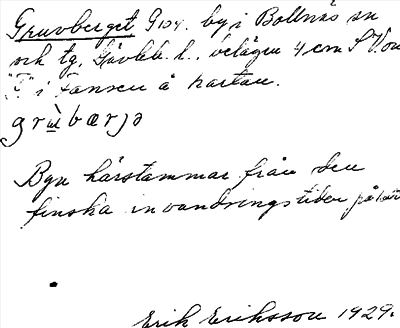 Gruvberget G104. by i Bollnäs sn
och tg, Gävleb. l., belägen 4 cm SV om
"F" i Fansen å kartan.
grù̵bærjə
Byn härstammar från den
finska invandringstiden på
Erik Eriksson 1929.